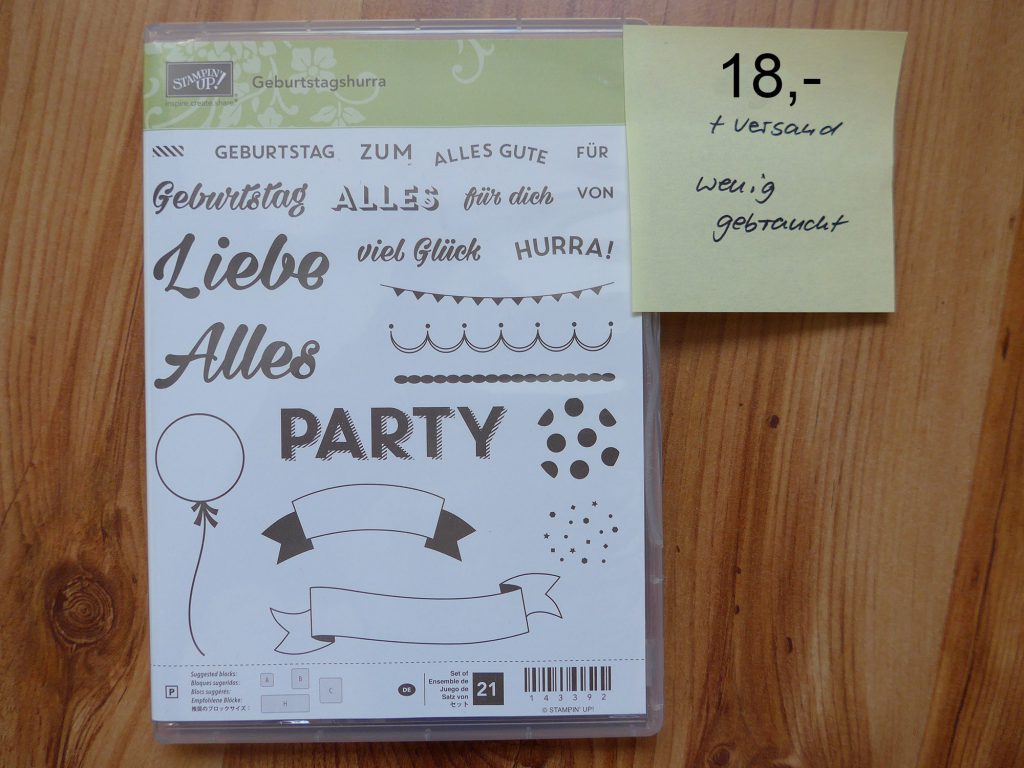 STAMPIN' UP!
inspire.create.share®
Geburtstagshurra
18,-
+ Versand
wenig
gebraucht
GEBURTSTAG ZUM ALLES GUTE FÜR
Geburtstag ALLES für dich VON
Liebe viel Glück HURRA!
Alles
PARTY
P
Suggested blocks:
Bloques sugeridos:
Blocs suggérés:
Empfohlene Blöcke:
推奨のブロックサイズ:
A B C H
DE
Set of
Ensemble de
Juego de
Satz von
セット
21
143392
© STAMPIN' UP!